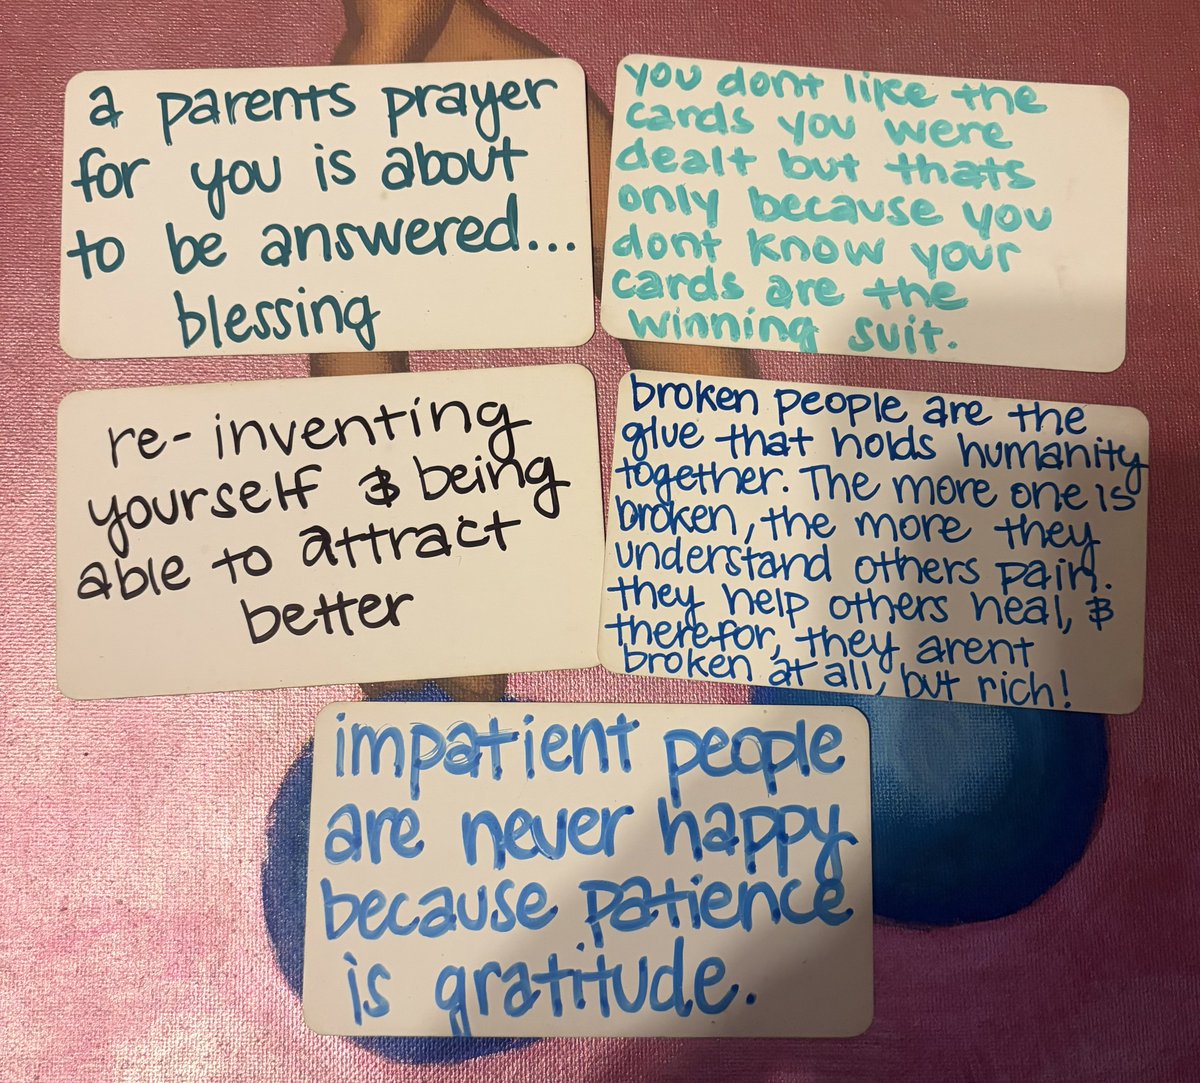 a parents prayer
for you is about
to be answered...
blessing
you dont like the
cards you were
dealt but thats
only because you
dont know your
cards are the
winning suit.
re-inventing
yourself & being
able to attract
better
broken people are the
glue that holds humanity
together. The more one is
broken, the more they
understand others pain.
they help others heal, &
therefor, they arent
broken at all, but rich!
impatient people
are never happy
because patience
is gratitude.